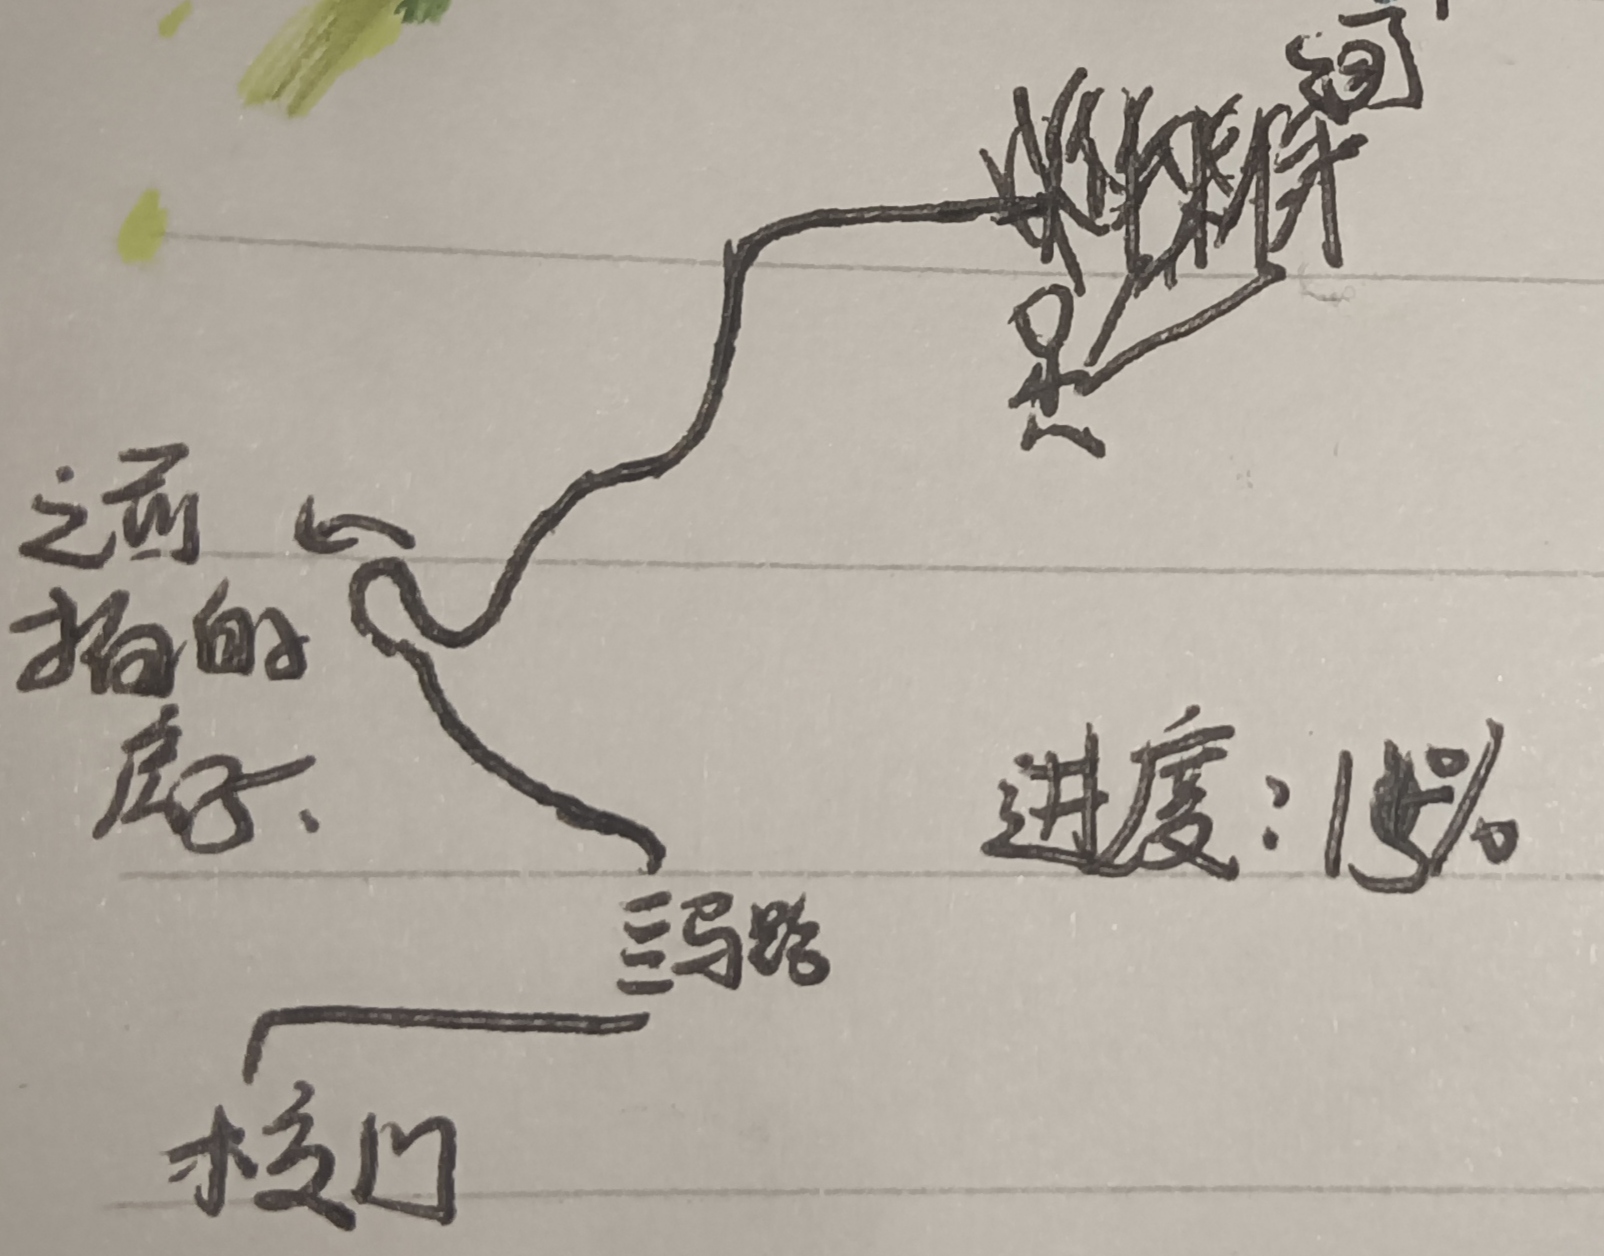 之前
拍的
房子.
进度:15%
三号路
校门